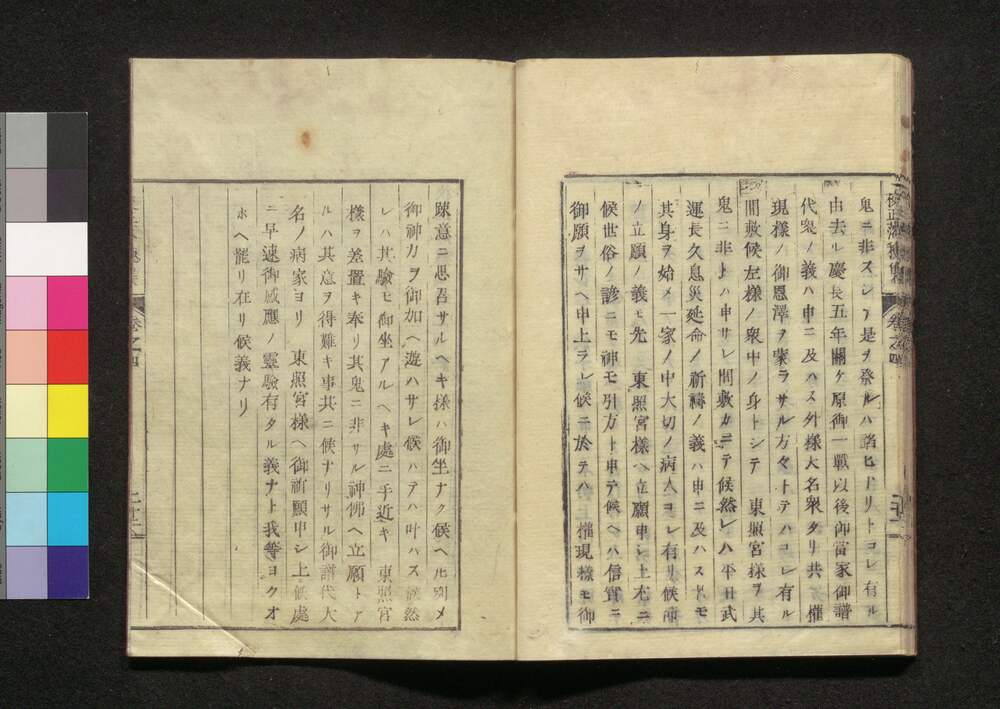 鬼ニ非スシテ是ヲ祭ルハ諂ヒナリトコレ有ル
由去ル慶長五年關ケ原御一戰以後御當家御譜
代衆ノ義ハ申ニ及ハス外様大名衆タリ共 權
現様ノ御恩澤ヲ蒙ラサル方々トテハコレ有ル
間敷候左様ノ衆中ノ身トシテ 東照宮様ヲ其
鬼ニ非トハ申サレ間敷カニテ候然レハ平日武
運長久息災延命ノ祈禱ノ義ハ申ニ及ハストモ
其身ヲ始メ一家ノ中大切ノ病人コレ有リ候節
ノ立願ノ義モ先 東照宮様ヘ立願申シ上尤ニ
候世俗ノ諺ニモ神モ引方ト申テ候ヘハ信實ニ
御願ヲサヘ申上ラレ候ニ於テハ 權現様モ御
疎意ニ思召サルヘキ様ハ御坐ナク候ヘ共別メ
御神力ヲ御加ヘ遊ハサレ候ハテハ叶ハス候然
レハ其驗モ御坐アルヘキ處ニ手近キ 東照宮
様ヲ差置キ奉リ其鬼ニ非サル神佛ヘ立願トア
ルハ其意ヲ得難キ事共ニ候ナリサル御譜代大
名ノ病家ヨリ 東照宮様ヘ御祈願申シ上候處
ニ早速御感應ノ靈驗有タル義ナト我等ヨクオ
ホヘ罷リ在リ候義ナリ
卷之四